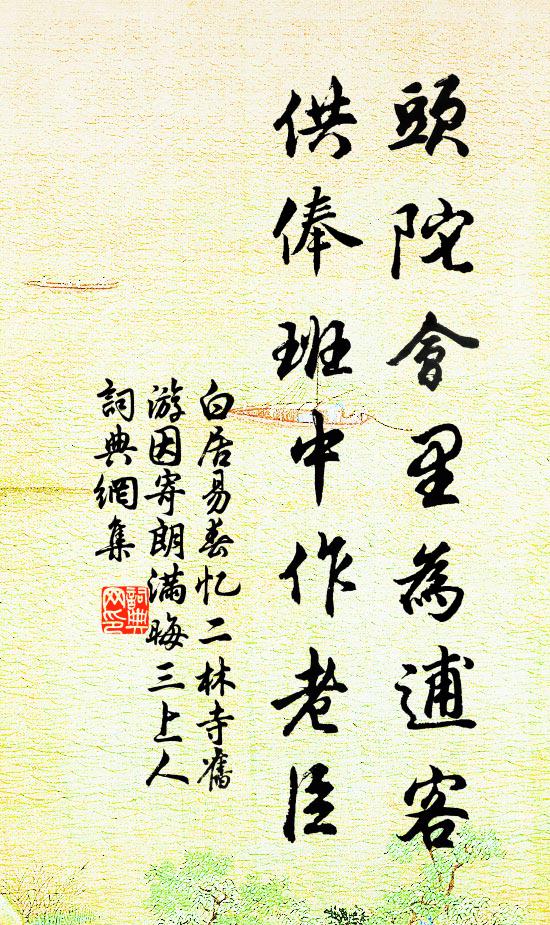 頭陀會里為逋客
供俸班中作老臣
白居易春忆二林寺舊
游因寄朗滿晦三上人
詞典網集
詞典
网印